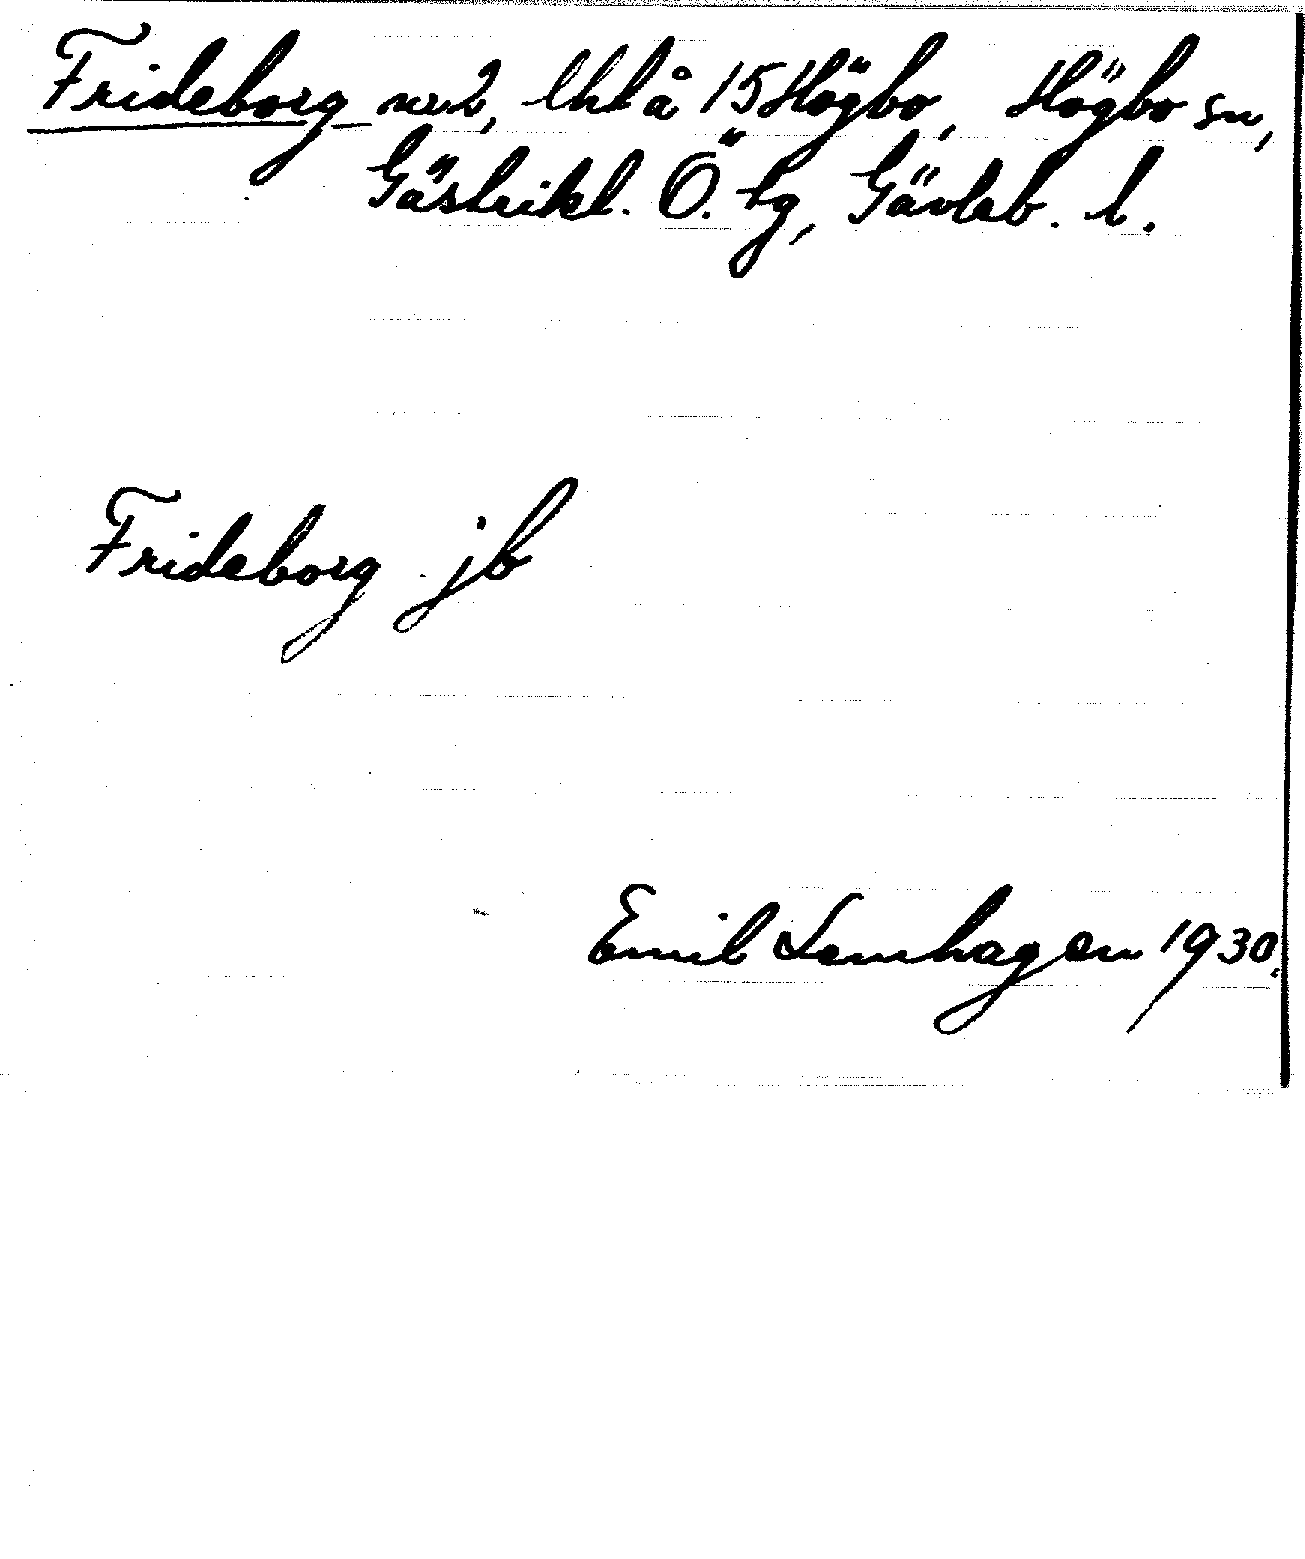 Frideborg nr 2, lht å 15 Högbo, Högbo sn,
Gästrikl. Ö. tg, Gävleb. l.
Frideborg jb
Emil Lemhagen 1930.